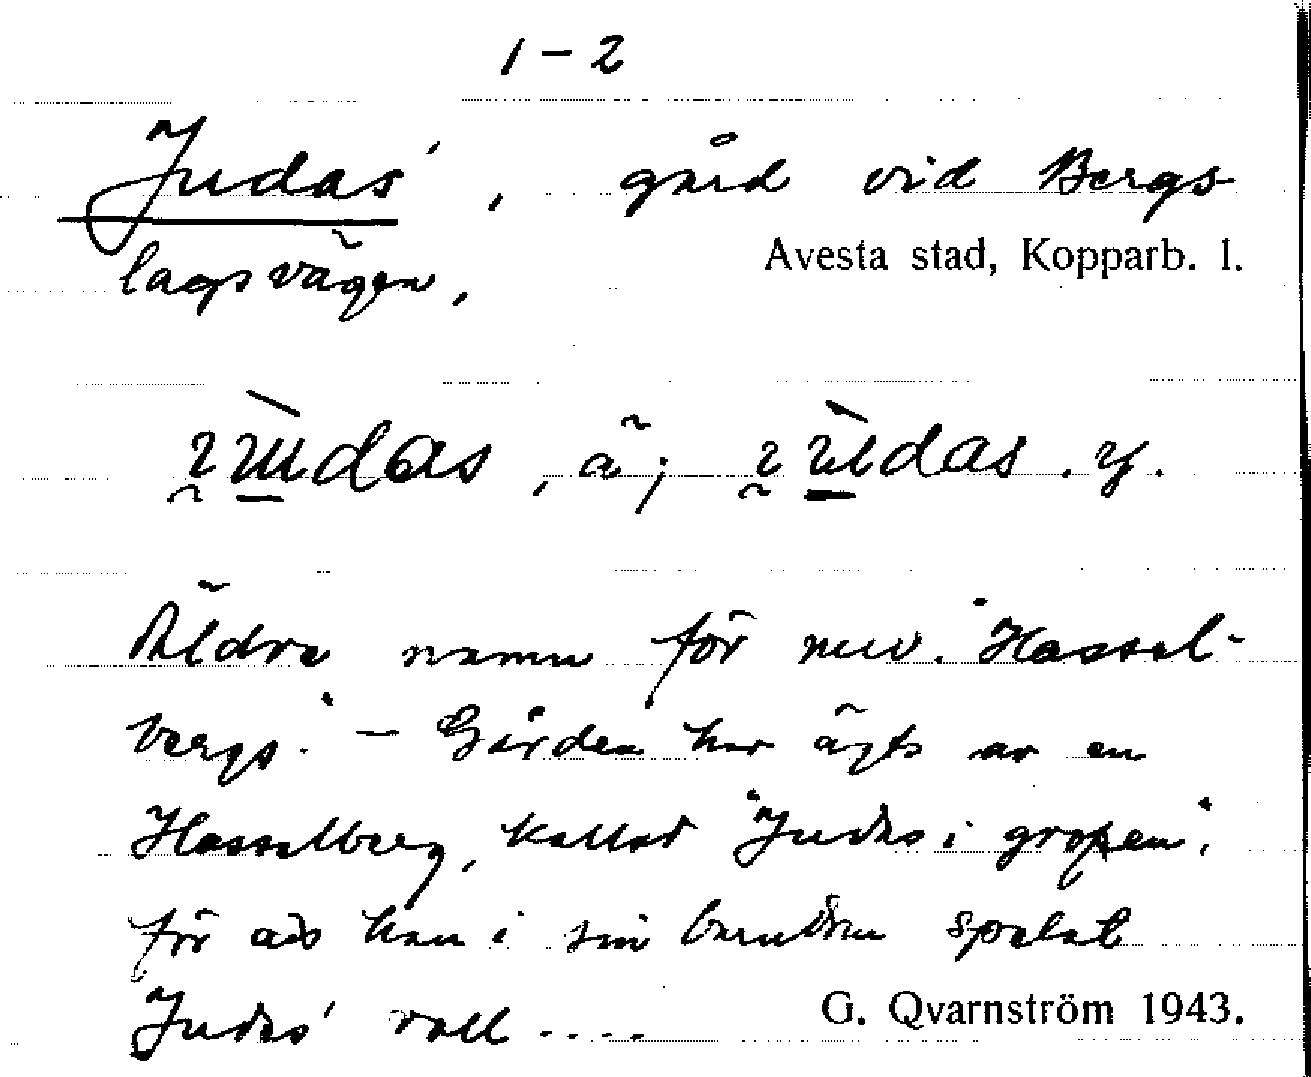 1-2
Judas', gård vid Bergs-
lagsvägen.
Avesta stad, Kopparb. l.
, ä; . y.
Äldre namn för nuv. "Hassel-
bergs". - Gården har ägts av en
Hasselberg, kallad "Judas i gropen",
för att han i sin barndom spelat
Judas' roll ....
G. Qvarnström 1943.